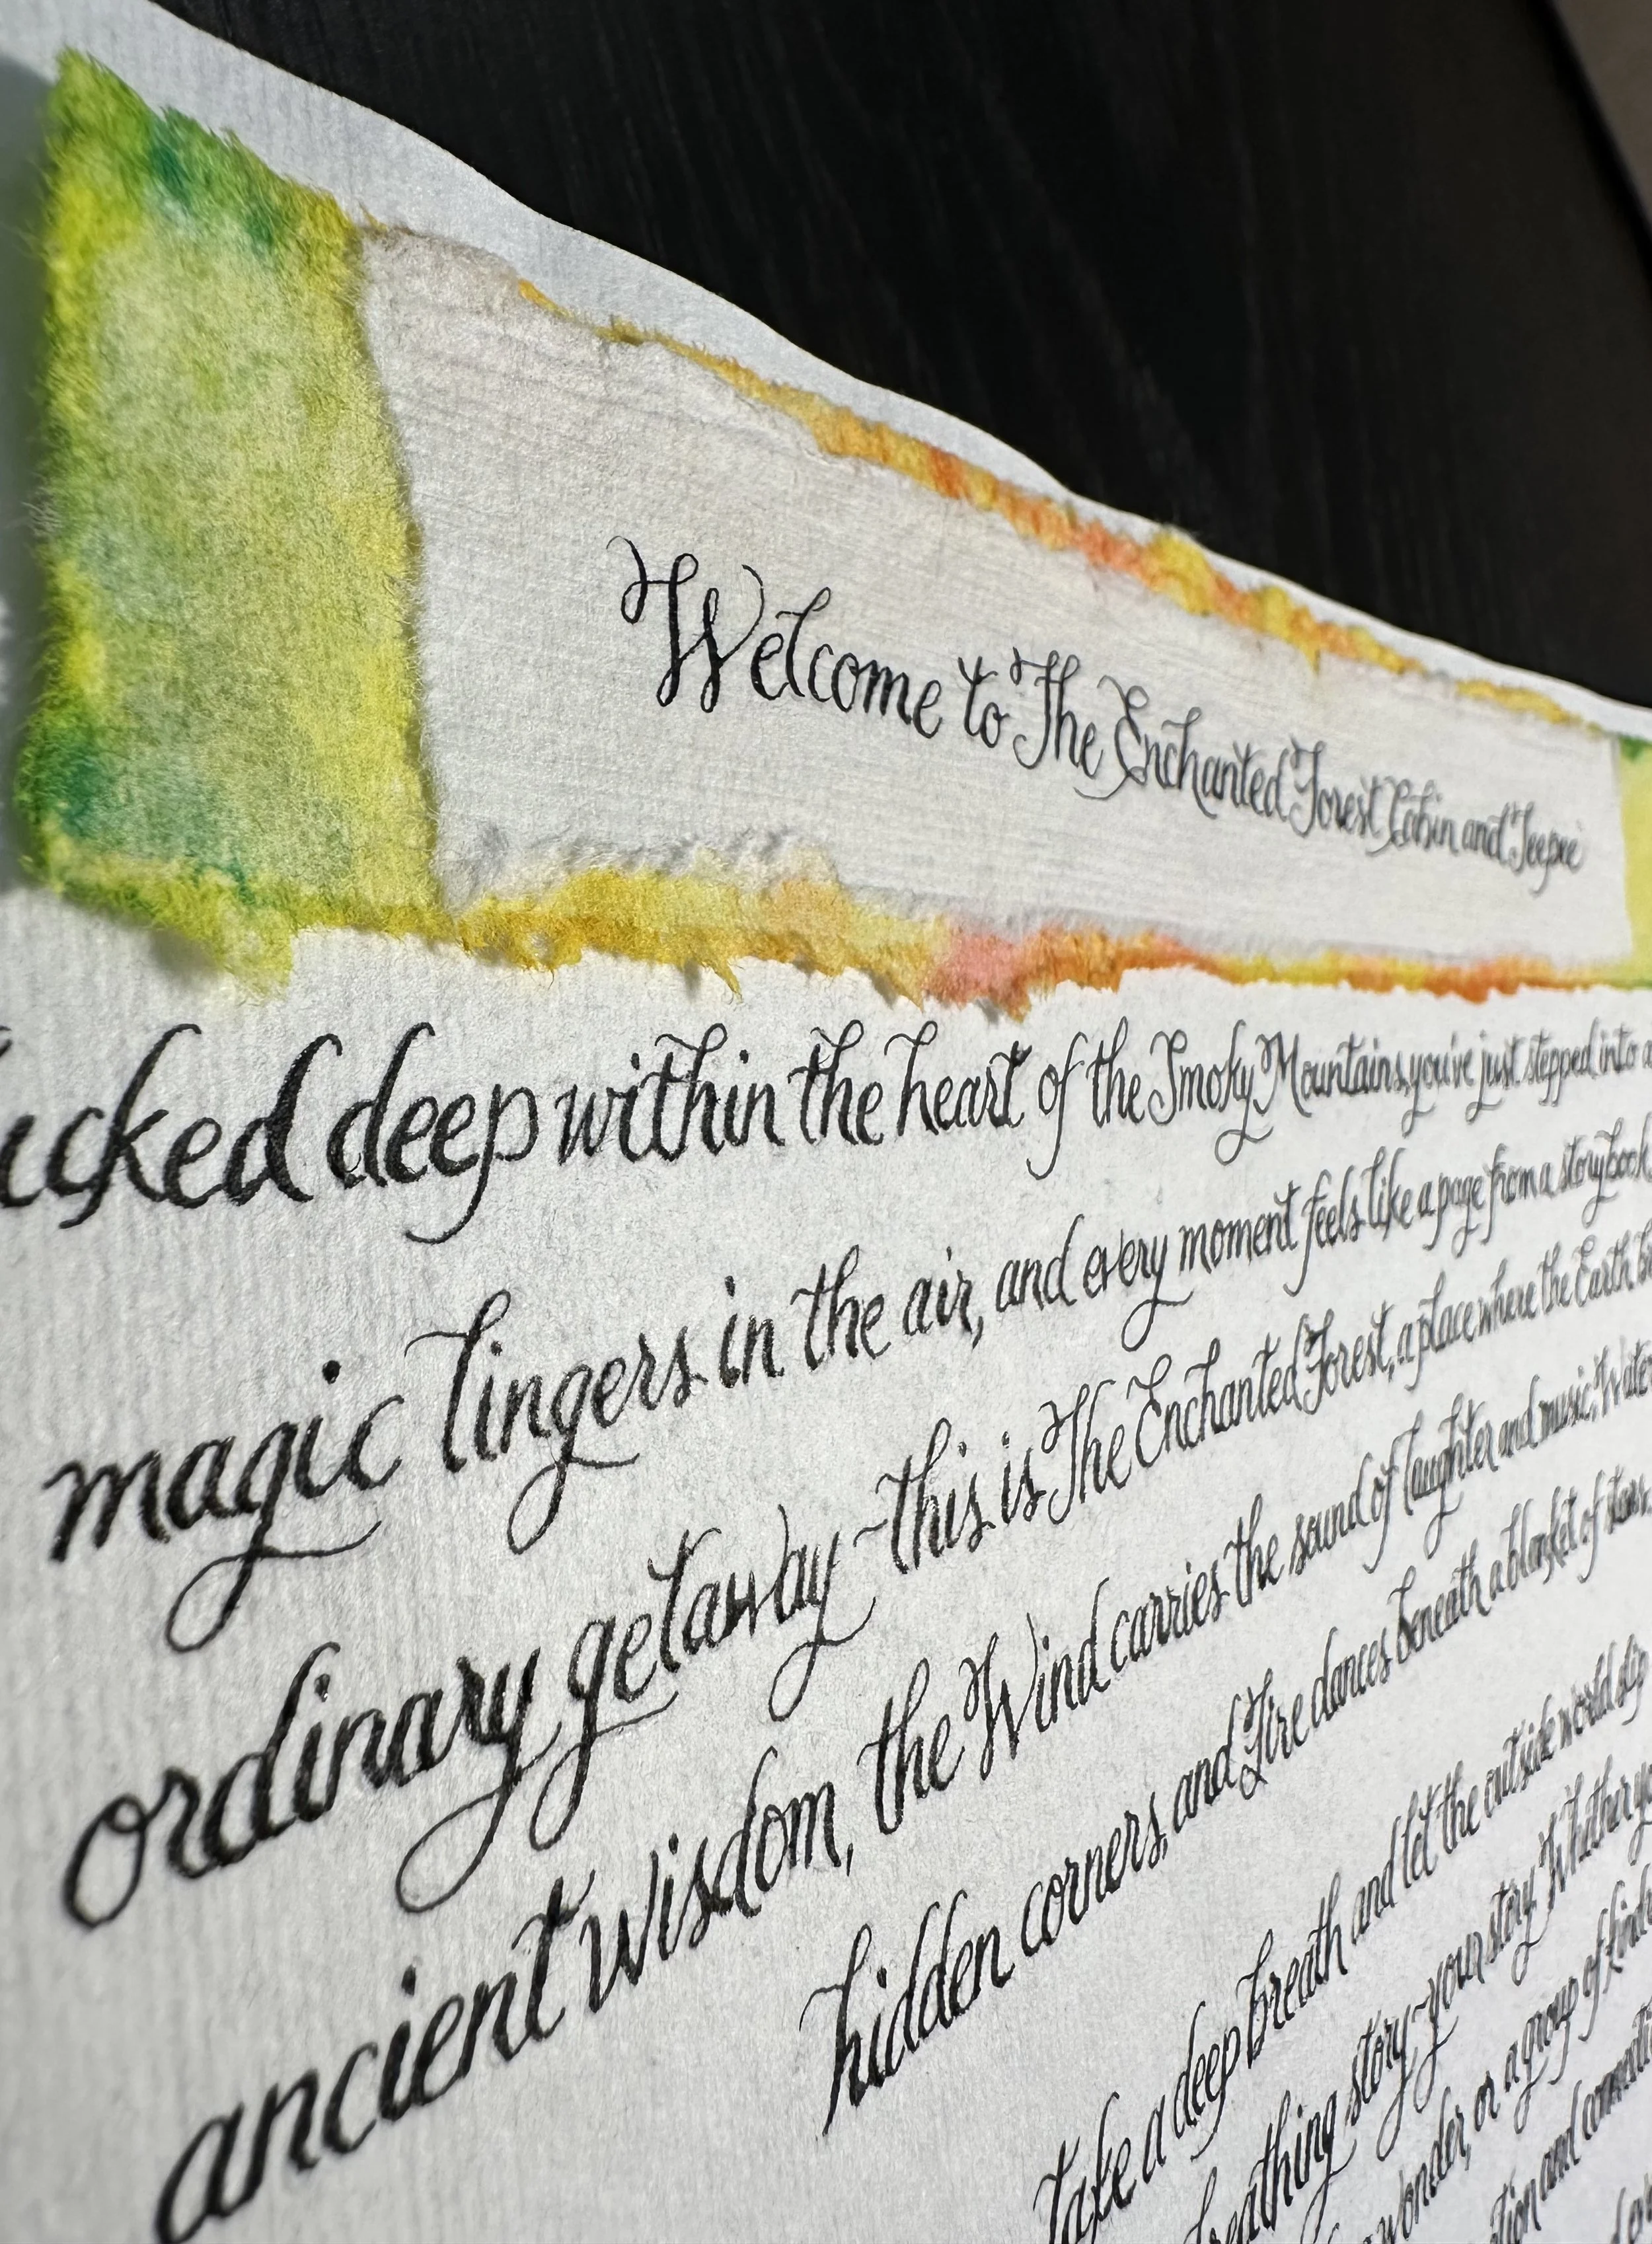 Welcome to The Enchanted Forest Cabin and Teepee
ucked deep within the heart of the Smoky Mountains, you've just stepped into a
magic lingers in the air, and every moment feels like a page from a storybook
ordinary getaway ~ this is The Enchanted Forest, a place where the Earth
ancient wisdom, the Wind carries the sound of laughter and music, Wate
hidden corners, and Fire dances beneath a blanket of stars.
Take a deep breath and let the outside world slip
breathing story ~ your story. Whether yo
wonder, or a group of kind
and